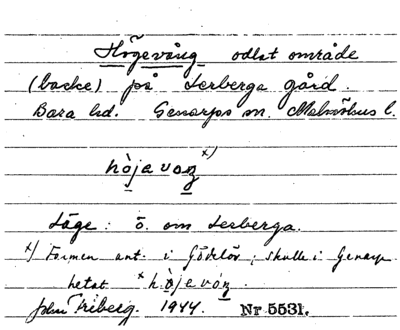 Högevång odlat område
(backe) på Lerberga gård.
Bara hd. Genarps sn. Malmöhus l.
hòjevoŋ x)
Läge: ö. om Lerberga.
x) Formen ant. i Gödelöv; skulle i Genarp
hetat *hòjevóŋ
John Friberg. 1944. Nr 5531.